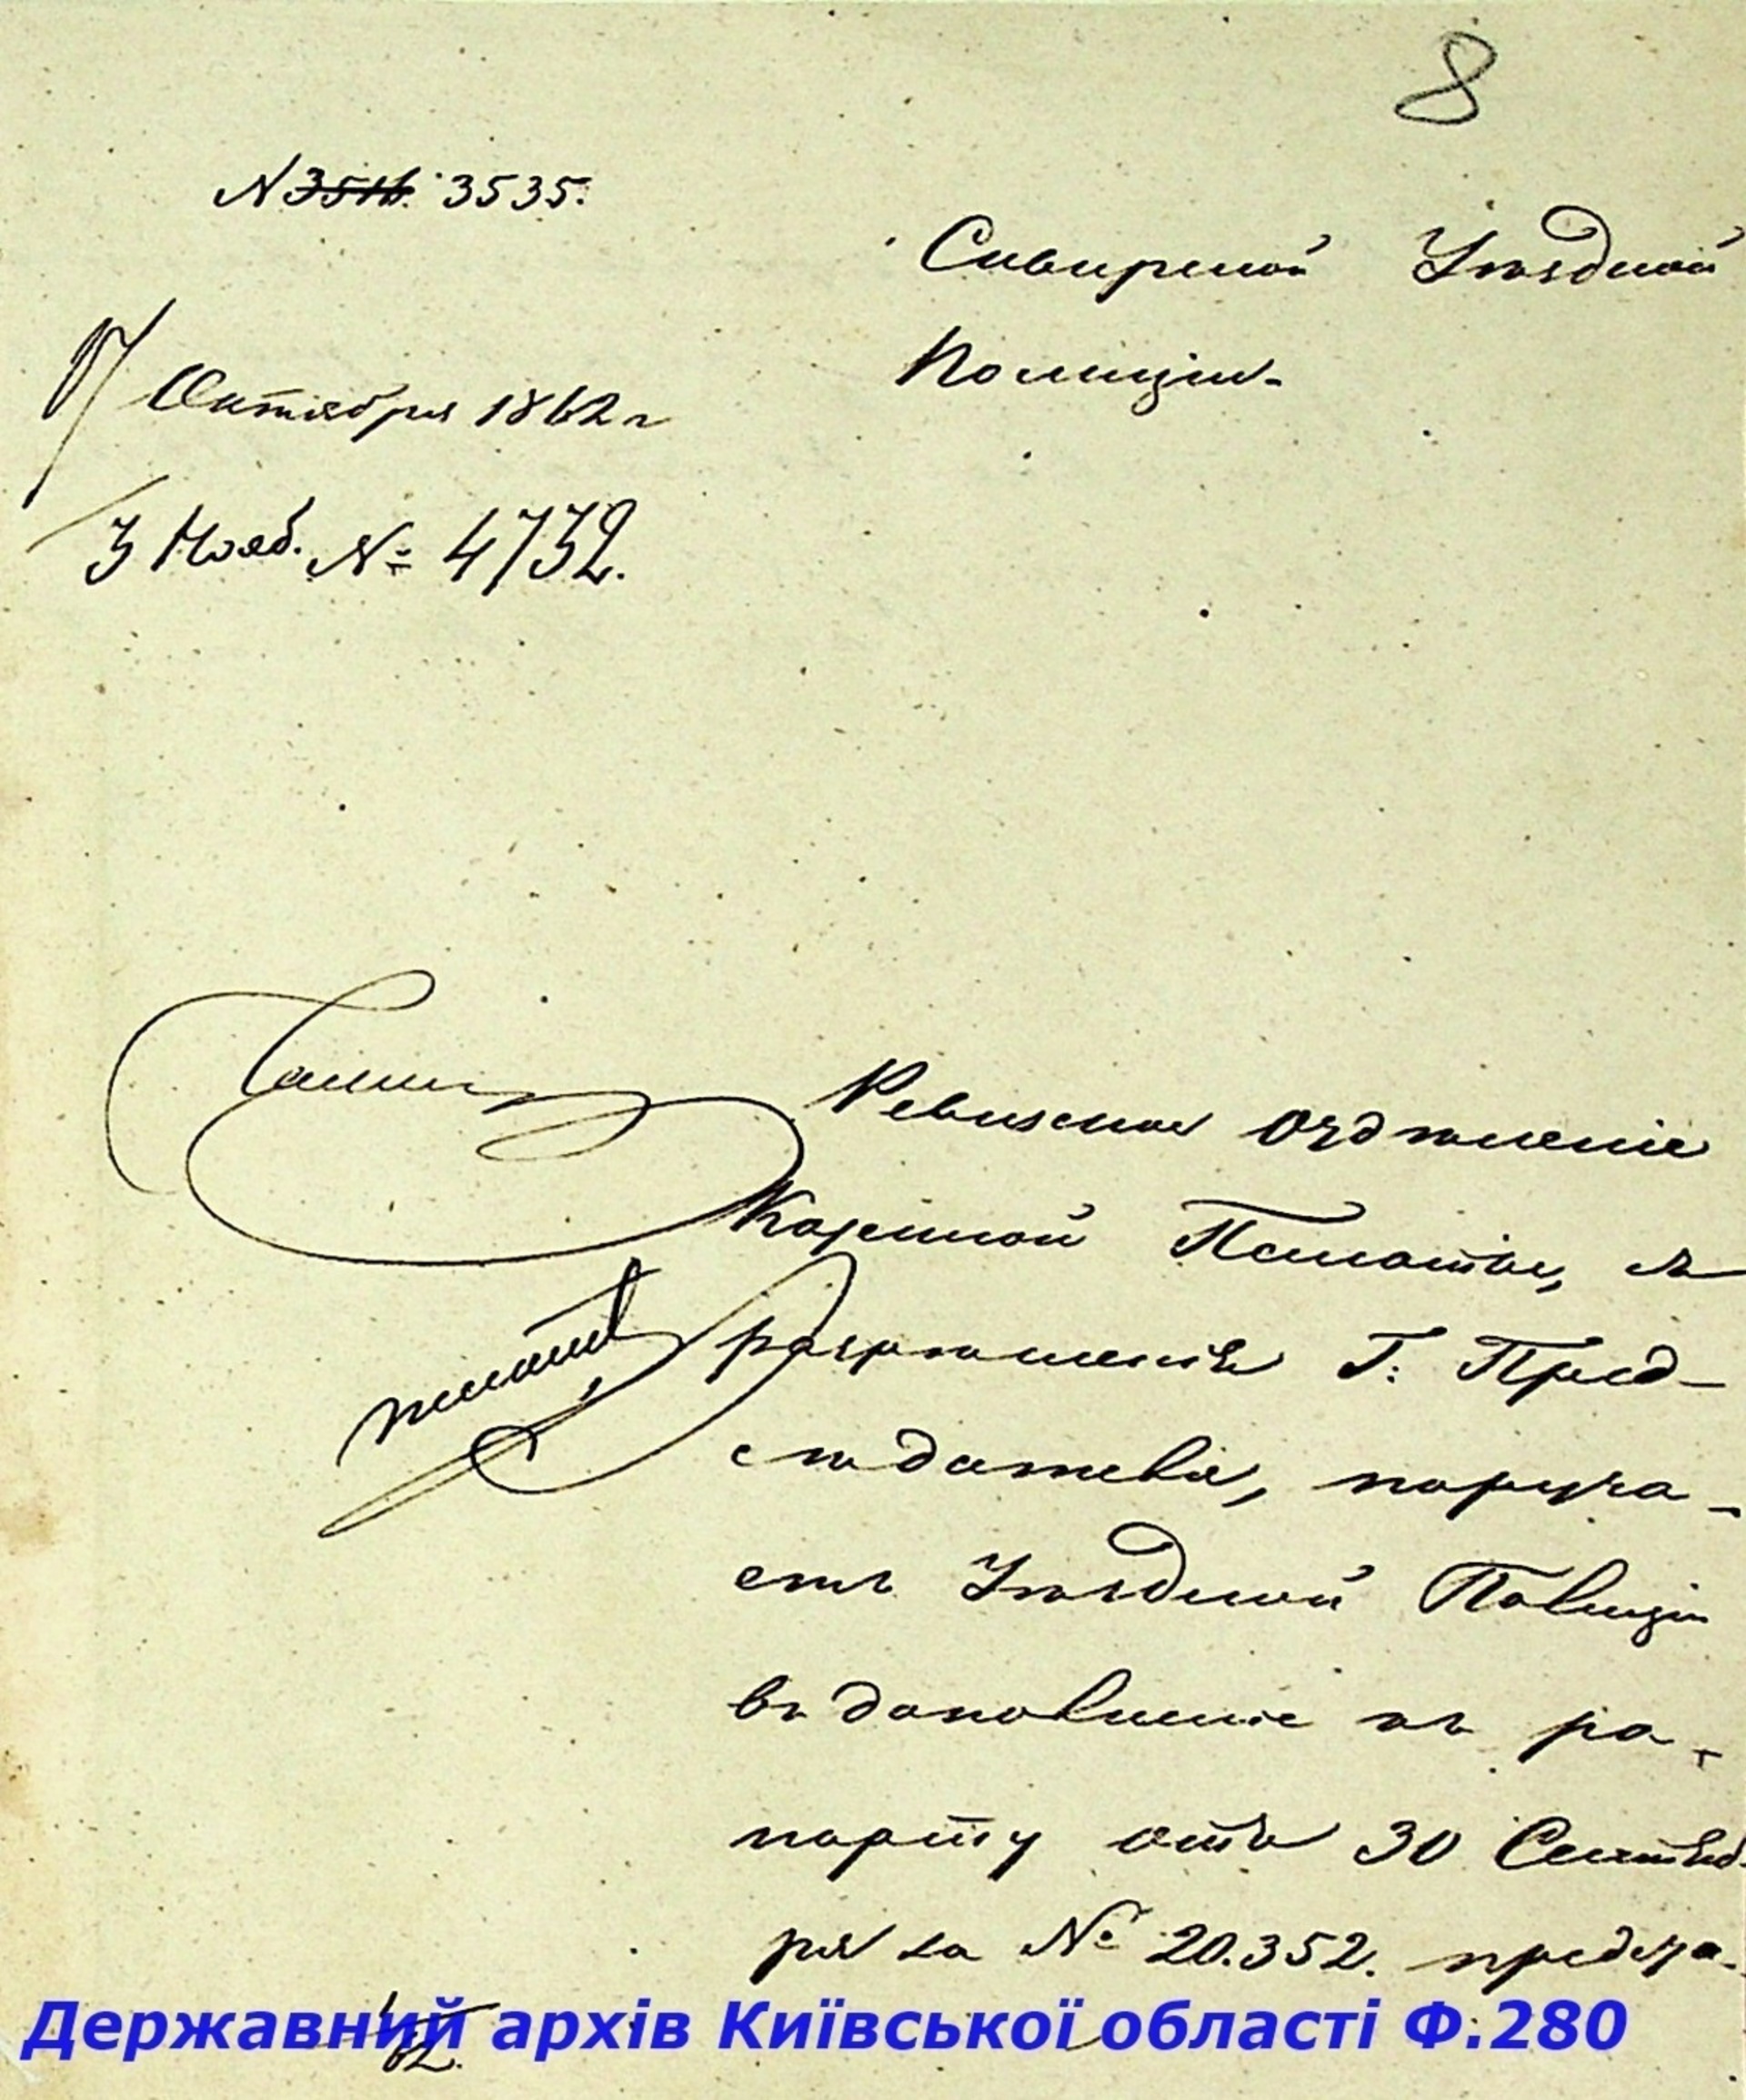 8
N 3516. 3535.
Сквирской Уѣздной
Полиціи.
Октября 1862 г
3 Нояб. № 4732.
Ревизское Отдѣленіе
Казенной Палаты, съ
разрѣшенія Г. Пред-
сѣдателя, поруча-
етъ Уѣздной Полиціи
въ дополненіе къ ра-
порту отъ 30 Сентяб-
ря за № 20.352. предста-
Державний архів Київської області Ф.280